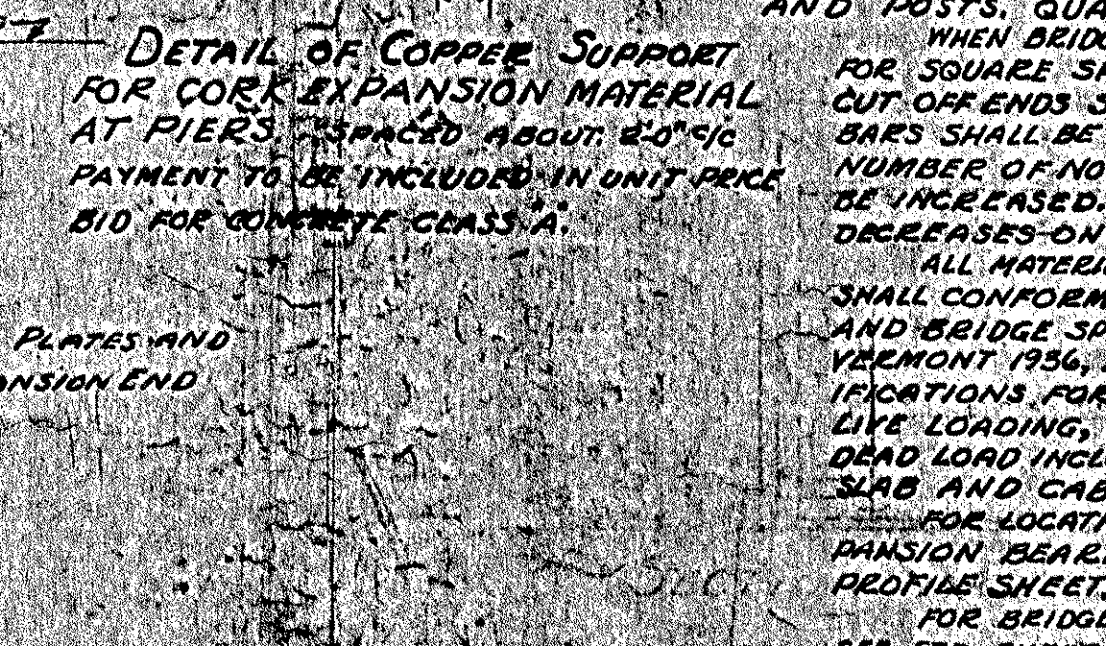 DETAIL OF COPPER SUPPORT
FOR CORK EXPANSION MATERIAL
AT PIERS. SPACED ABOUT 2'-0" C/C
PAYMENT TO BE INCLUDED IN UNIT PRICE
BID FOR CONCRETE CLASS "A".
PLATES AND
ANSION END
AND POSTS. QUA
WHEN BRIDG
FOR SQUARE SP
CUT OFF ENDS S
BARS SHALL BE
NUMBER OF NO
BE INCREASED.
DECREASES ON
ALL MATERI
SHALL CONFORM
AND BRIDGE SP
VERMONT 1936,
IFICATIONS FOR
LIVE LOADING,
DEAD LOAD INCL
SLAB AND CAB
FOR LOCATI
PANSION BEAR
PROFILE SHEET.
FOR BRIDGE